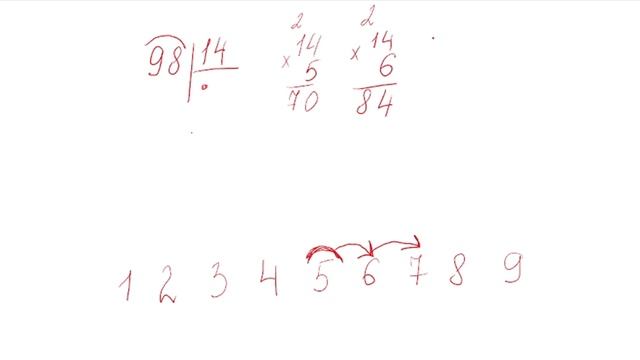 2 2
98 14 14 14
× 5 × 6
70 84
1 2 3 4 5 6 7 8 9